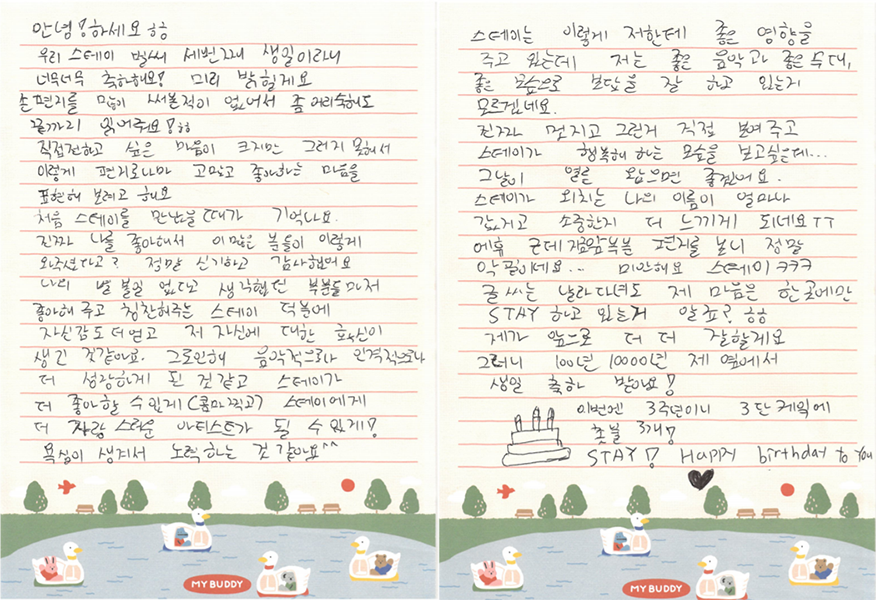 안녕!하세요 ㅎㅎ
우리 스테이 벌써 세번째 생일이라니
너무너무 축하해요! 미리 밝힐게요
손편지를 많이 써본적이 없어서 좀 어리숙해도
끝까지 읽어줘요! ㅎㅎ
직접전하고 싶은 마음이 크지만 그러지 못해서
이렇게 편지로나마 고맙고 좋아하는 마음을
표현해 보려고 해요
처음 스테이를 만났을 때가 기억나요.
진짜 나를 좋아해서 이많은 분들이 이렇게
와주셨다고? 정말 신기하고 감사했어요
나의 별 볼일 없다고 생각했던 부분들마저
좋아해 주고 칭찬해주는 스테이 덕분에
자신감도 더 얻고 저 자신에 대한 확신이
생긴 것같아요. 그로인해 음악적으로나 인격적으로나
더 성장하게 된 것 같고 스테이가
더 좋아할 수 있게 (콤마 찍고) 스테이에게
더 자랑 스러운 아티스트가 될 수 있게!
욕심이 생겨서 노력하는 것 같아요^^
스테이는 이렇게 저한테 좋은 영향을
주고 있는데 저는 좋은 음악과 좋은 무대,
좋은 모습으로 보답을 잘 하고 있는지
모르겠네요.
진짜 멋지고 그런거 직접 보여 주고
스테이가 행복해 하는 모습을 보고싶은데...
그날이 얼른 왔으면 좋겠어요.
스테이가 외치는 나의 이름이 얼마나
값지고 소중한지 더 느끼게 되네요ㅜㅜ
에휴 근데 지금 앞부분 편지를 보니 정말
악필이네요... 미안해요 스테이 ㅋㅋㅋ
글씨는 날라다녀도 제 마음은 한곳에만
STAY 하고 있는거 알죠? ㅎㅎ
제가 앞으로 더 더 잘할게요
그러니 100년 10000년 제 옆에서
생일 축하 받아요!
이번엔 3주년이니 3단케익에
촛불 3개!
STAY! Happy birthday to you
MY BUDDY
MY BUDDY